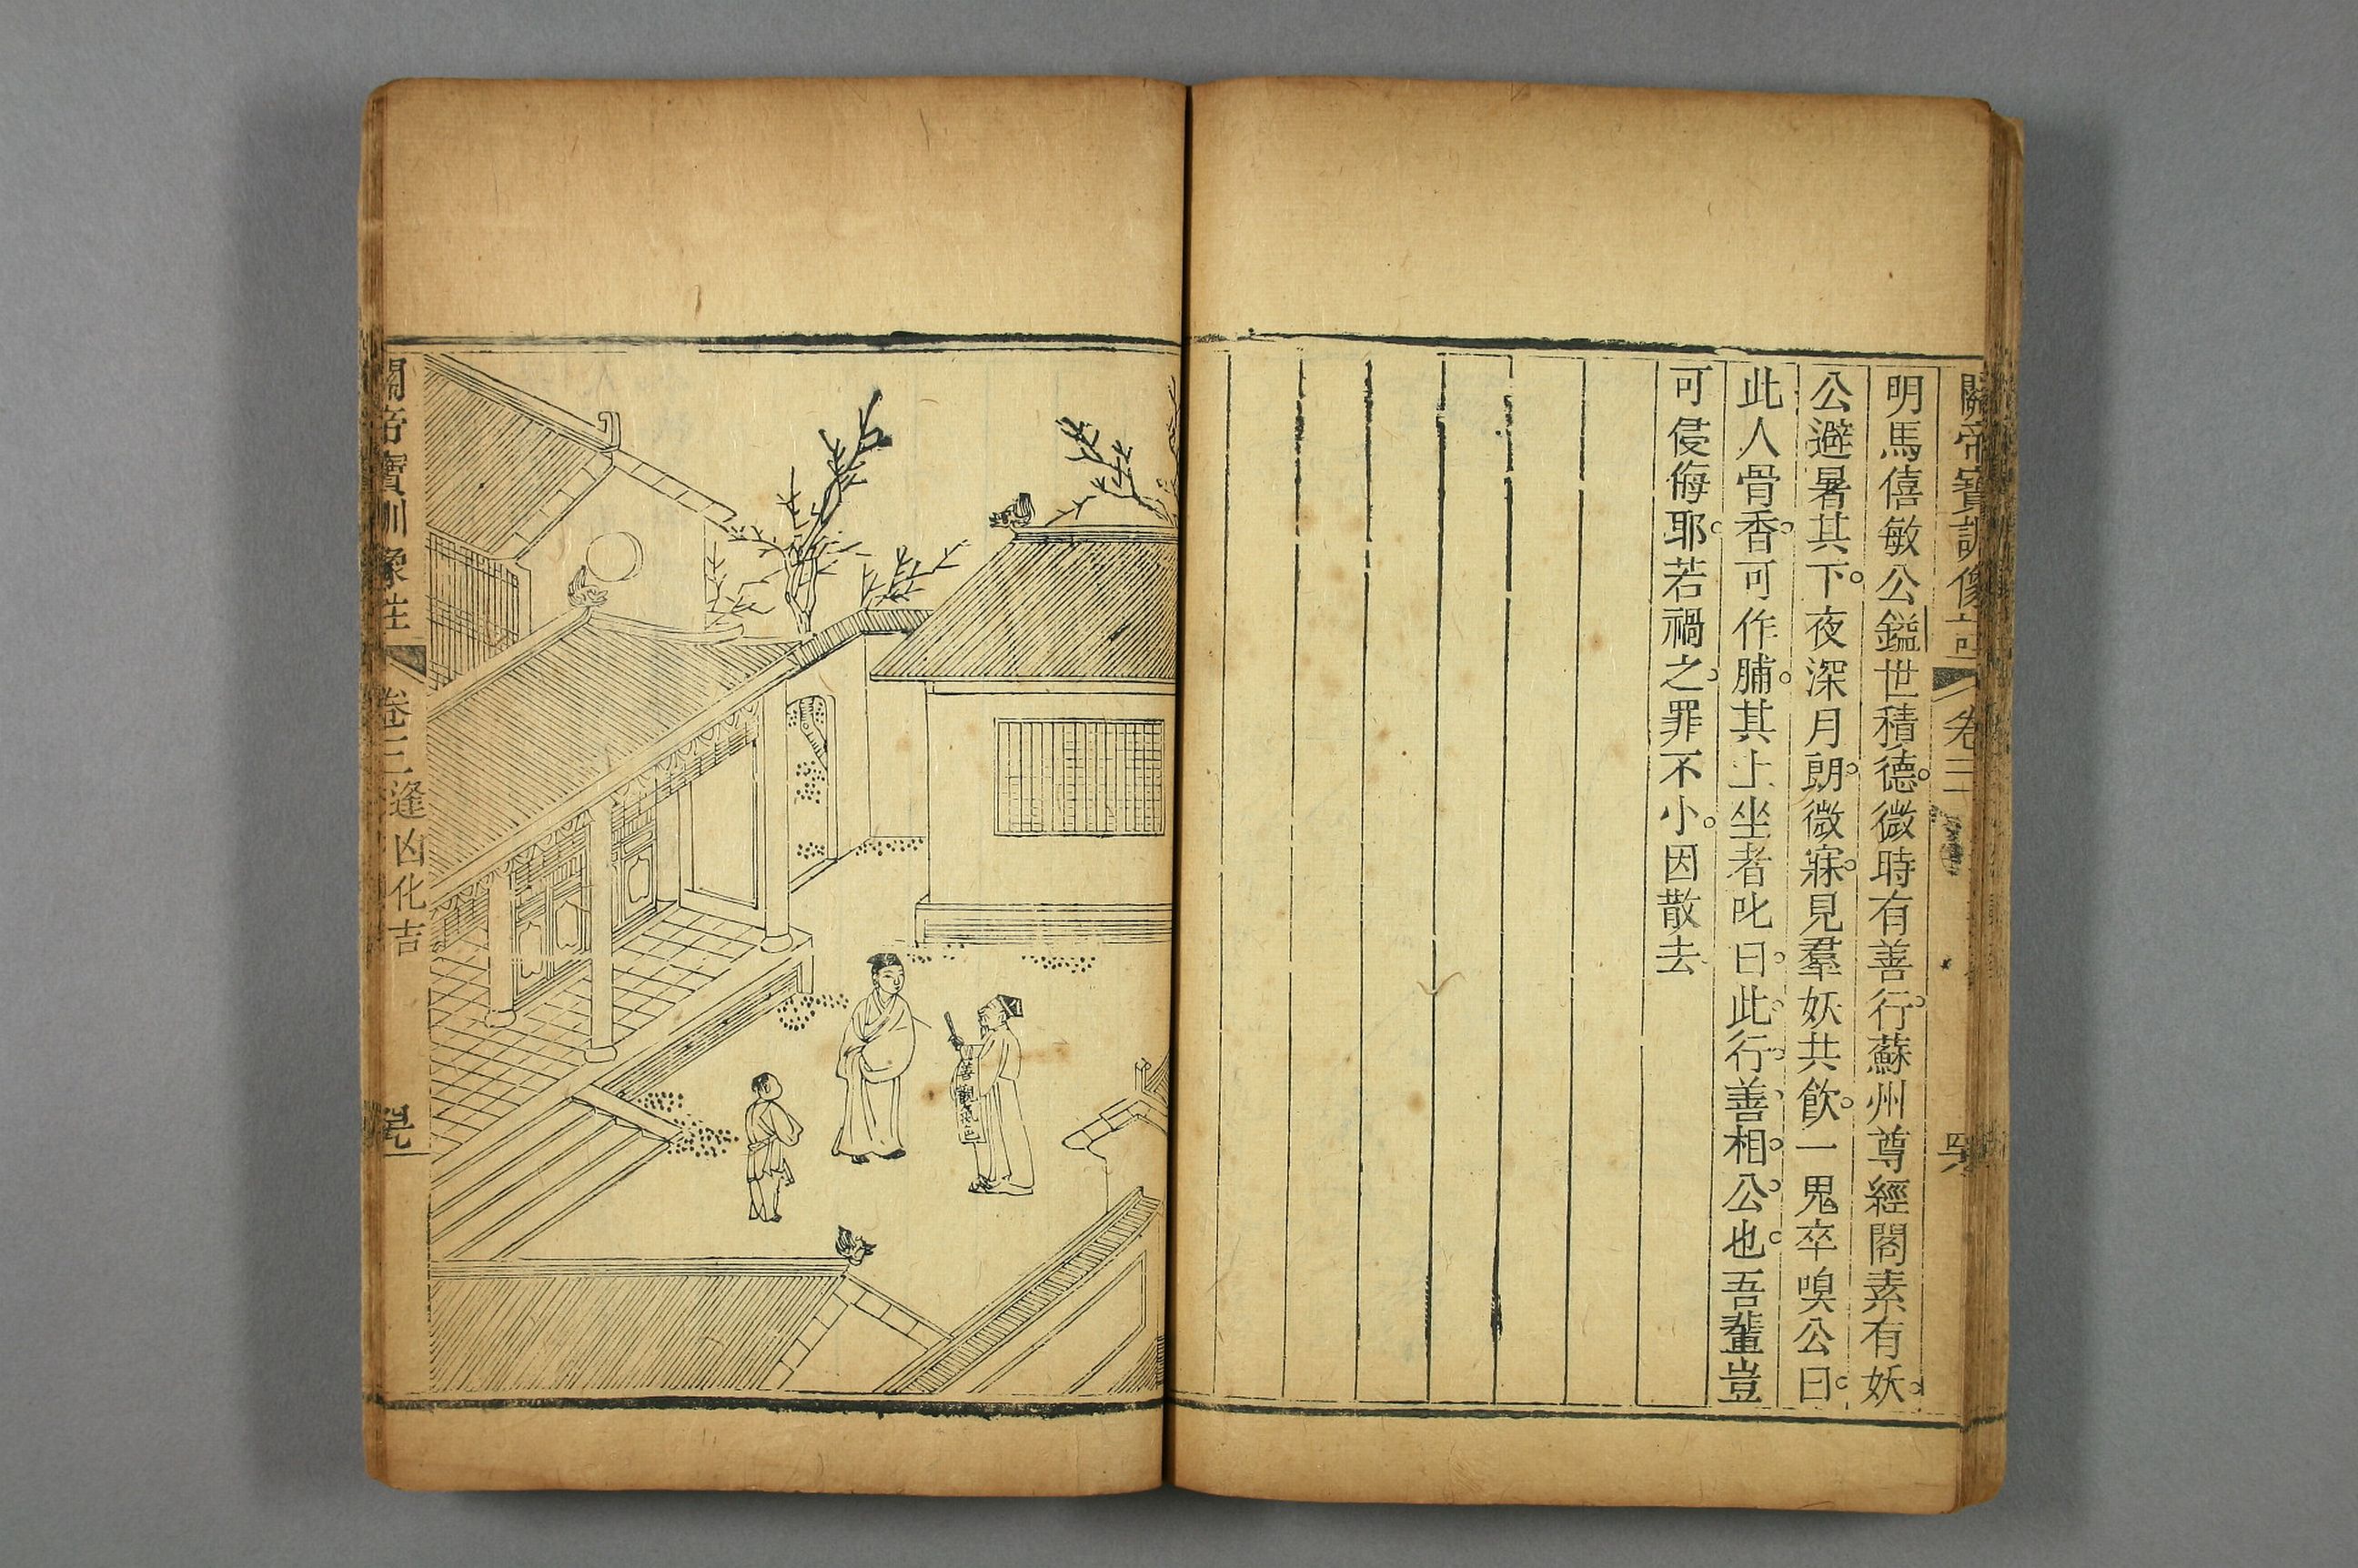 關帝寶訓像註 卷三
明馬僖敏公鎰世積德微時有善行蘇州尊經閣素有妖
公避暑其下夜深月朗微寐見羣妖共飲一鬼卒嗅公曰
此人骨香可作脯其上坐者叱曰此行善相公也吾輩豈
可侵侮耶若禍之罪不小因散去
善觀氣色
關帝寶訓像註 卷三 逢凶化吉